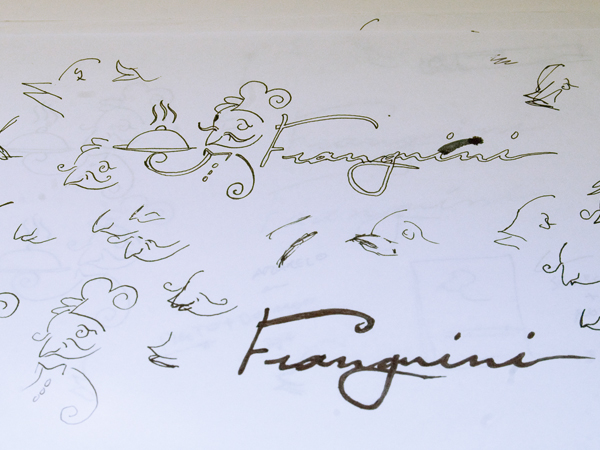 Frangnini
Frangnini